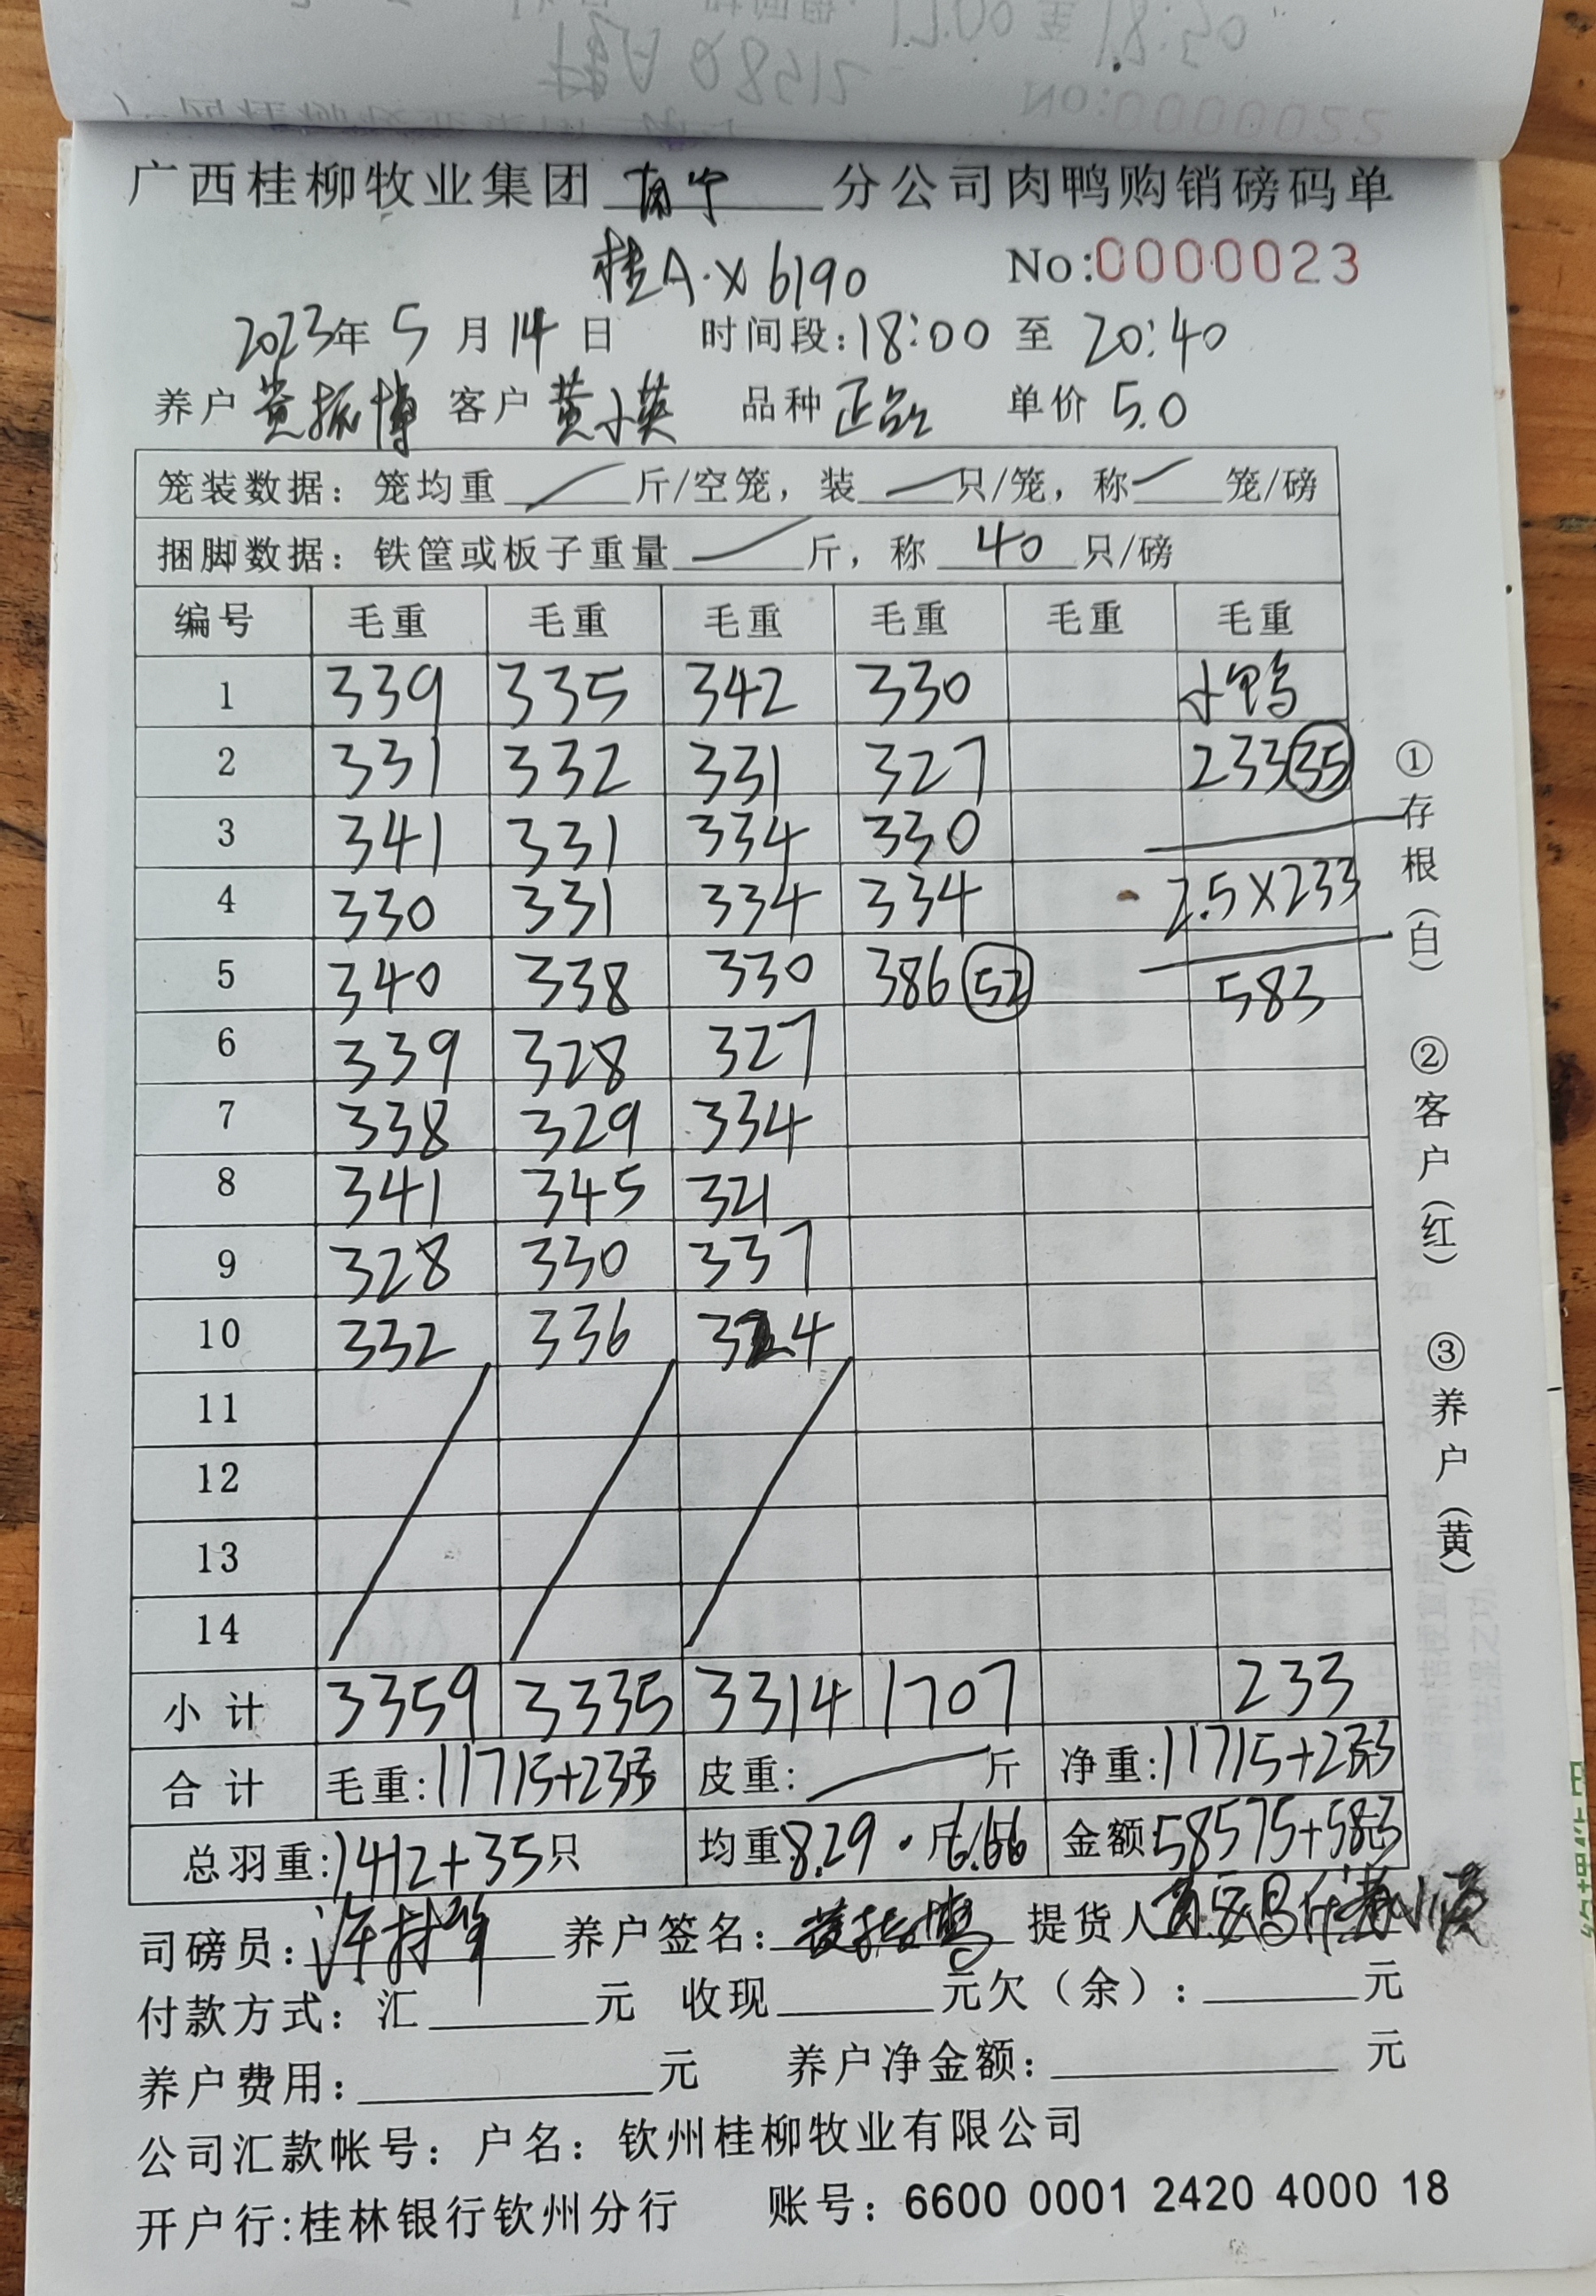 广西桂柳牧业集团 南宁 分公司肉鸭购销磅码单
桂A·X6190 No:0000023
2023年 5 月 14 日 时间段:18:00 至 20:40
养户 黄振博 客户 黄小英 品种 正品 单价 5.0
笼装数据：笼均重 斤/空笼，装 只/笼，称 笼/磅
捆脚数据：铁筐或板子重量 斤，称 40 只/磅
编号 毛重 毛重 毛重 毛重 毛重 毛重
1 339 335 342 330 小鸭
2 331 332 331 327 233 35
3 341 331 334 330
4 330 331 334 334 2.5X233
5 340 338 330 386 52 583
6 339 328 327
7 338 329 334
8 341 345 321
9 328 330 337
10 332 336 324
11
12
13
14
小计 3359 3335 3314 1707 233
合计 毛重:11715+233 皮重: 斤 净重:11715+233
总羽重:1412+35只 均重8.29·斤6.66 金额:58575+583
司磅员: 养户签名: 黄振博 提货人
付款方式：汇 元 收现 元欠（余）: 元
养户费用: 元 养户净金额: 元
公司汇款帐号：户名：钦州桂柳牧业有限公司
开户行:桂林银行钦州分行 账号：6600 0001 2420 4000 18
①存根（白） ②客户（红） ③养户（黄）